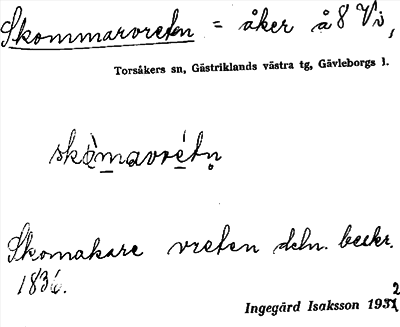 Skommarvreten = åker å 8 Vi,
Torsåkers sn, Gästriklands västra tg, Gävleborgs l.
skòmavrétn
Skomakare vreten deln. beskr.
1836.
Ingegärd Isaksson 1932